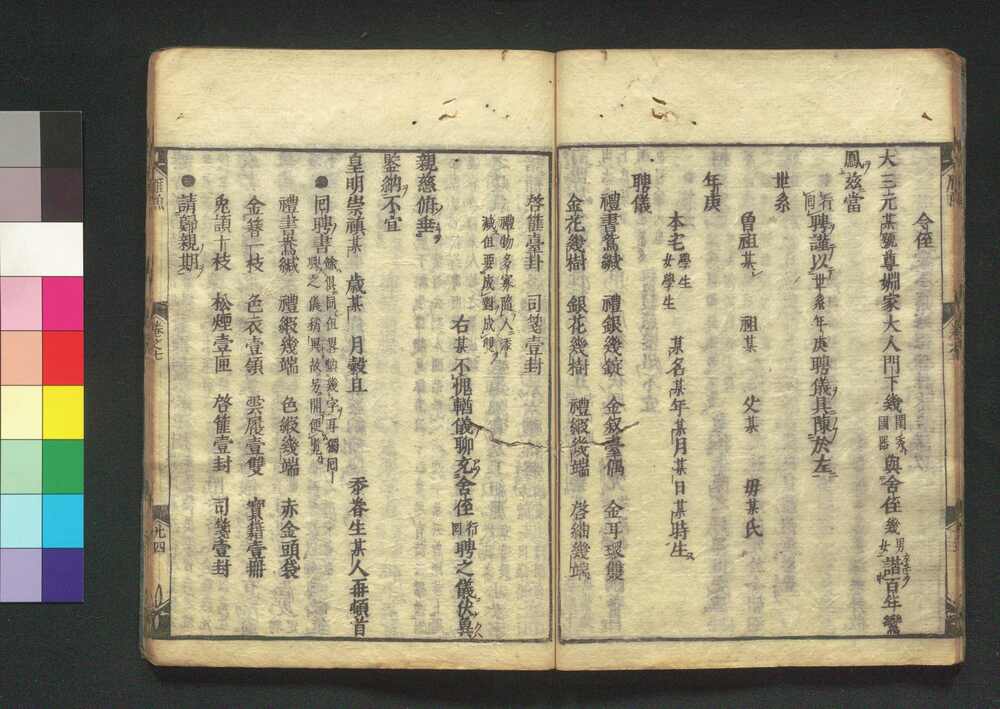 令侄
大三元某號尊姻家大人門下幾閨秀國器與舍侄幾男女諧百年鸞
鳳兹當
行回聘謹以世系年庚聘儀具陳於左
世系
曾祖某 祖某 父某 母某氏
年庚
本宅學生女學生 某名某年某月某日某時生
聘儀
禮書鴛緘 禮銀幾錠 金釵壹偶 金耳環雙
金花幾樹 銀花幾樹 禮緞幾端 啓紬幾端
啓篚壹封 司箋壹封
禮物多寡隨人添
減但要成對成雙
右某不腆輶儀聊充舍侄行回聘之儀伏冀
親慈俯垂
鑒納不宣
皇明崇禎某歲某月穀旦 忝眷生某人再頓首
回聘書
禮書鴛緘 禮緞幾端 色緞幾端 赤金頭袋
金簪一枝 色衣壹領 雲履壹雙 寶籍壹冊
兎頴十枝 松煙壹匣 啓篚壹封 司箋壹封
請歸親期
卷之七
九四